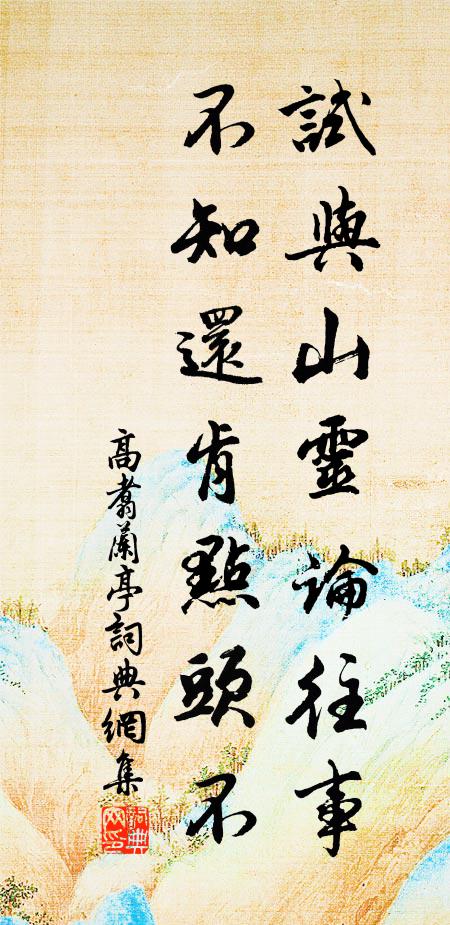 試與山靈論往事
不知還肯點頭不
高翥蘭亭詞典網集
詞典網印